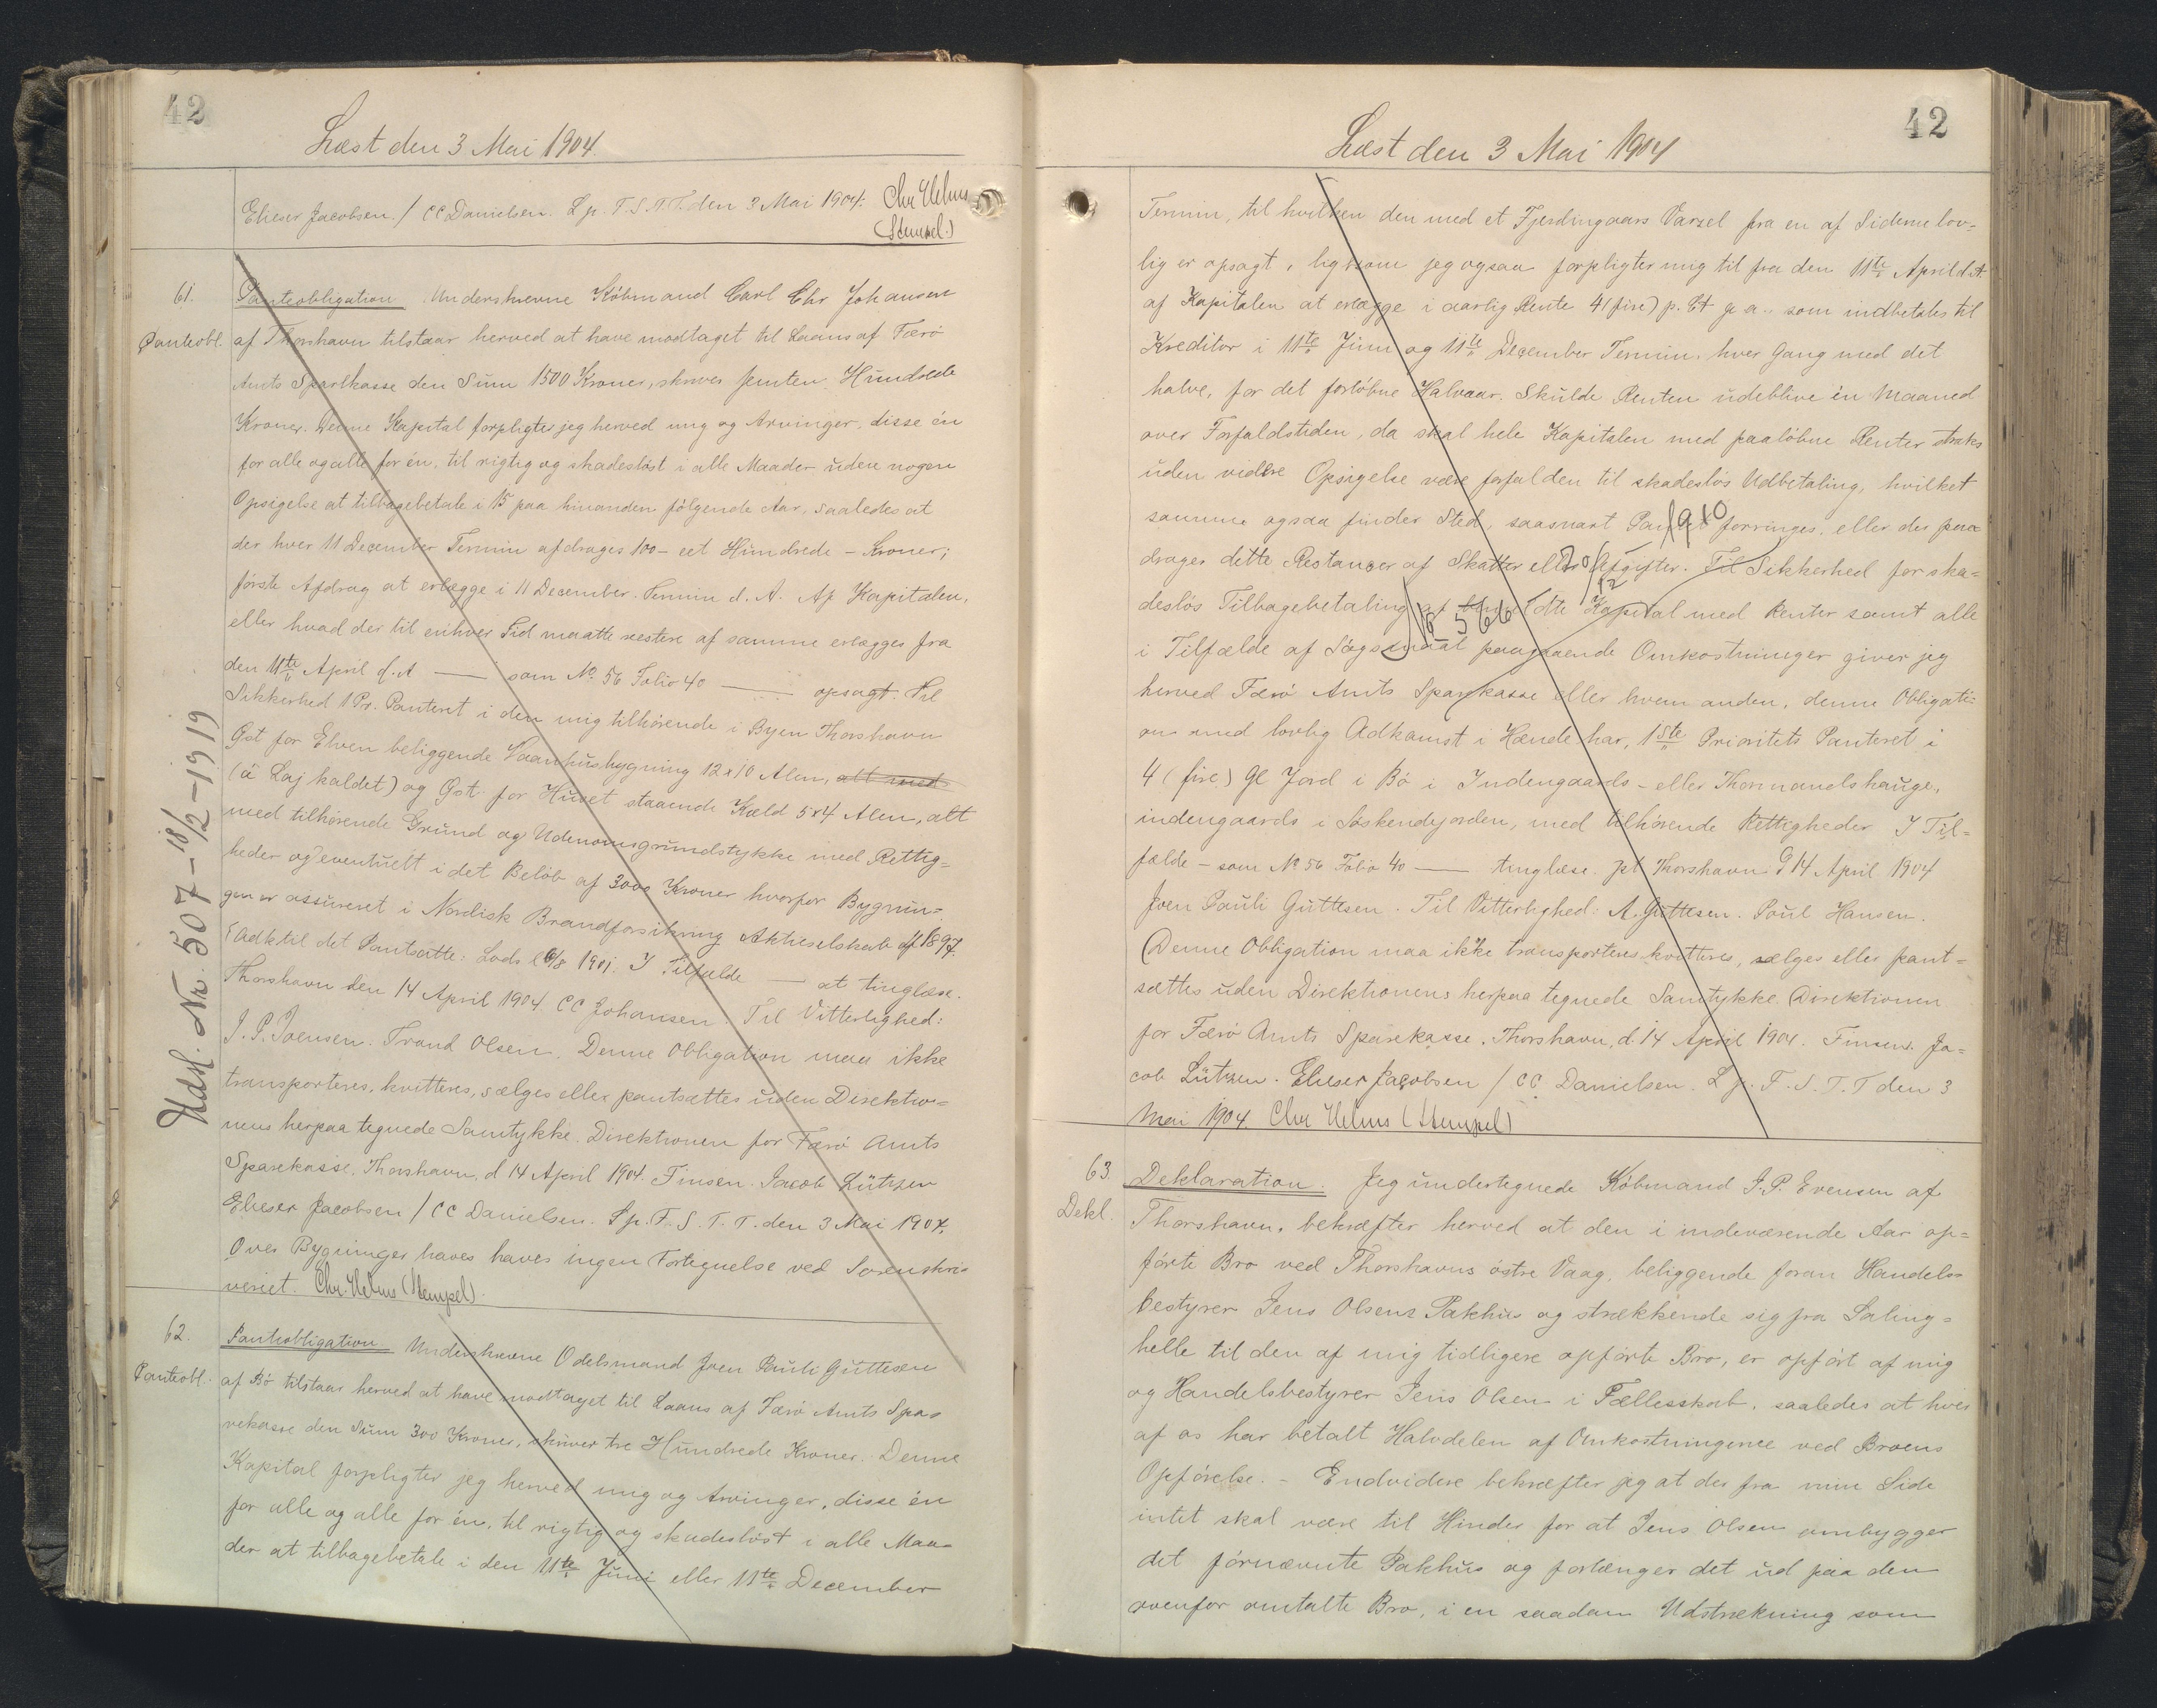 42
Læst den 3 Mai 1904.
Elieser Jacobsen. / CC Danielsen. L p. F. S. T. T. den 3 Mai 1904. Chr Helms
(Stempel.)
61.
Panteobl.
Panteobligation Underskrevne Köbmand Carl Chr Johansen
af Thorshavn tilstaar herved at have modtaget til Laans af Færö
Amts Sparekasse den Sum 1500 Kroner, skriver femten Hundrede
Kroner. Denne Kapital forpligter jeg herved mig og Arvinger, disse én
for alle og alle for én, til rigtig og skadeslöst i alle Maader uden nogen
Opsigelse at tilbagebetale i 15 paa hinanden fölgende Aar, saaledes at
der hver 11 December Termin afdrages 100 – eet Hundrede – Kroner;
förste Afdrag at erlægge i 11 December Termin d. A. Af Kapitalen,
eller hvad der til enhver Tid maatte restere af samme erlægges fra
den 11te April d. A — som No 56 Folio 40 — opsagt. Til
Sikkerhed 1 Pr. Panteret i den mig tilhörende i Byen Thorshavn
Öst for Elven beliggende Vaanhusbygning 12 x 10 Alen, alt med
(á Laj kaldet) og Öst for Huset staaende Kæld 5x4 Alen, alt
med tilhörende Grund og Udenomsgrundstykke med Rettig=
heder og eventuelt i det Belöb af 3000 Kroner hvorfor Bygnin=
gen er assureret i Nordisk Brandforsikring Aktieselskab af 1897.
(Adk til det Pantsatte: Lods 6/8 1901. I Tilfælde — at tinglæse.
Thorshavn den 14 April 1904. CC Johansen. Til Vitterlighed:
J. P. Joensen. Trond Olsen. Denne Obligation maa ikke
transporteres, kvitteres, sælges eller pantsættes uden Direktio=
nens herpaa tegnede Samtykke. Direktionen for Færö Amts
Sparekasse. Thorshavn, d 14 April 1904. Finsen. Jacob Lützen
Elieser Jacobsen / CC Danielsen. L p. F. S. T. T. den 3 Mai 1904.
Over Bygninger haves haves ingen Fortegnelse ved Sorenskri=
veriet. Chr. Helms (Stempel).
Udsl. Nr. 507 – 18/2 – 1919
62.
Panteobl.
Panteobligation Underskrevne Odelsmand Joen Pauli Guttesen
af Bö tilstaar herved at have modtaget til Laans af Færö Amts Spa=
rekasse den Sum 300 Kroner, skriver tre Hundrede Kroner. Denne
Kapital forpligter jeg herved mig og Arvinger, disse én
for alle og alle for én, til rigtig og skadeslöst i alle Maa=
der at tilbagebetale i den 11te Juni eller 11te December
42
Læst den 3 Mai 1904
Termin, til hvilken den med et Fjerdingaars Varsel fra en af Siderne lov=
lig er opsagt, ligesom jeg ogsaa forpligter mig til fra den 11te April d. A.
af Kapitalen at erlægge i aarlig Rente 4 (fire) p. Ct p. a. som indbetales til
Kreditor i 11te Juni og 11te December Termin, hver Gang med det
halve, for det forlöbne Halvaar. Skulde Renten udeblive én Maaned
over Forfaldstiden, da skal hele Kapitalen med paalöbne Renter straks
uden videre Opsigelse være forfalden til skadeslös Udbetaling, hvilket
samme ogsaa finder Sted, saasnart Pantet forringes, eller der paa
drages dette Restancer af Skatter eller Afgifter. Til Sikkerhed for ska=
deslös Tilbagebetaling af Kapital med Renter samt alle
i Tilfælde af Sögsmaal paagaaende Omkostninger giver jeg
herved Færö Amts Sparekasse eller hvem anden, denne Obligati=
on med lovlig Adkomst i Hænde har, 1ste Prioritets Panteret i
4 (fire) Gl Jord i Bö i Indengaards – eller Thormandshauge,
indengaards i Söskendejorden, med tilhörende Rettigheder. I Til=
fælde – som No 56 Folio 40 — tinglæse. pt Thorshavn d 14 April 1904
Joen Pauli Guttesen. Til Vitterlighed: A. Guttesen. Poul Hansen.
(Denne Obligation maa ikke transporteres kvitteres, sælges eller pant=
sættes uden Direktionens herpaa tegnede Samtykke. Direktionen
for Færö Amts Sparekasse. Thorshavn, d. 14 April 1904. Finsen. Ja=
cob Lützen. Elieser Jacobsen / CC Danielsen. L p. F. S. T. T den 3
Mai 1904. Chr Helms (Stempel)
63.
Dekl.
Deklaration. Jeg undertegnede Köbmand J. P. Evensen af
Thorshavn, bekræfter herved at den i indeværende Aar op=
förte Bro ved Thorshavns östre Vaag, beliggende foran Handels=
bestyrer Jens Olsens Pakhus og strækkende sig fra Saling=
helle til den af mig tidligere opförte Bro, er opfört af mig
og Handelsbestyrer Jens Olsen i Fællesskab, saaledes at hver
af os har betalt Halvdelen af Omkostningerne ved Broens
Opförelse. – Endvidere bekræfter jeg at der fra min Side
intet skal være til Hinder for at Jens Olsen ombygger
det förnævnte Pakhus og forlænger det ud paa den
ovenfor omtalte Bro, i en saadan Udstrækning som